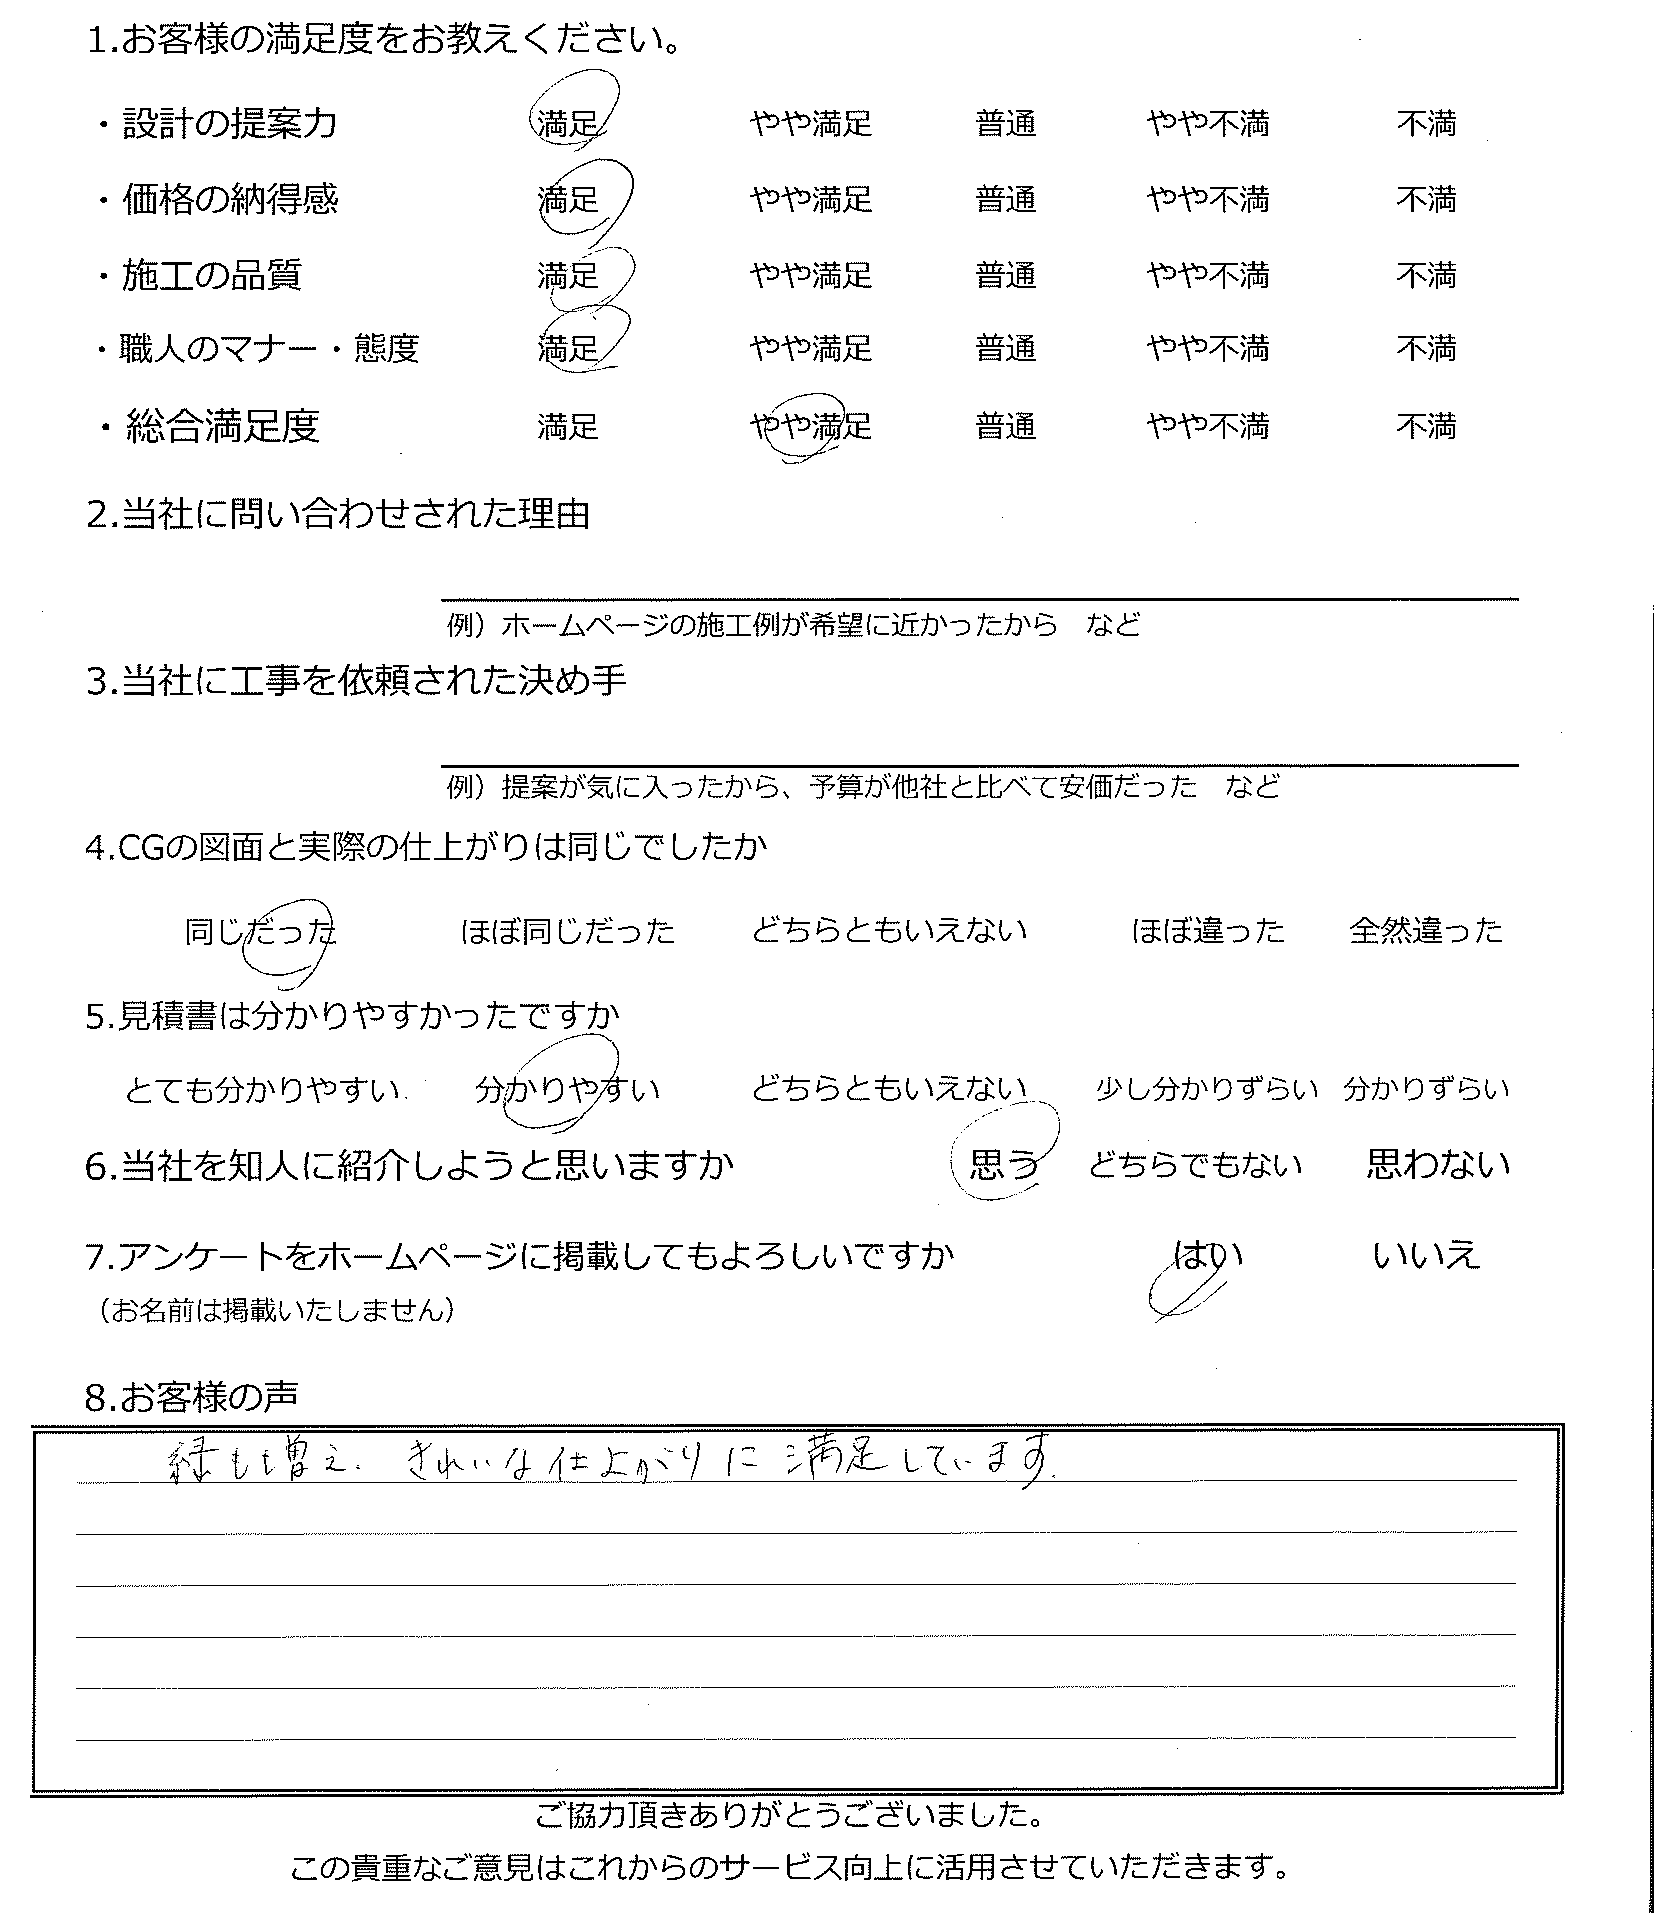 1.お客様の満足度をお教えください。
・設計の提案力 満足 やや満足 普通 やや不満 不満
・価格の納得感 満足 やや満足 普通 やや不満 不満
・施工の品質 満足 やや満足 普通 やや不満 不満
・職人のマナー・態度 満足 やや満足 普通 やや不満 不満
・総合満足度 満足 やや満足 普通 やや不満 不満
2.当社に問い合わせされた理由
例）ホームページの施工例が希望に近かったから　など
3.当社に工事を依頼された決め手
例）提案が気に入ったから、予算が他社と比べて安価だった　など
4.CGの図面と実際の仕上がりは同じでしたか
同じだった ほぼ同じだった どちらともいえない ほぼ違った 全然違った
5.見積書は分かりやすかったですか
とても分かりやすい 分かりやすい どちらともいえない 少し分かりずらい 分かりずらい
6.当社を知人に紹介しようと思いますか 思う どちらでもない 思わない
7.アンケートをホームページに掲載してもよろしいですか はい いいえ
（お名前は掲載いたしません）
8.お客様の声
緑も増え、きれいな仕上がりに満足しています.
ご協力頂きありがとうございました。
この貴重なご意見はこれからのサービス向上に活用させていただきます。